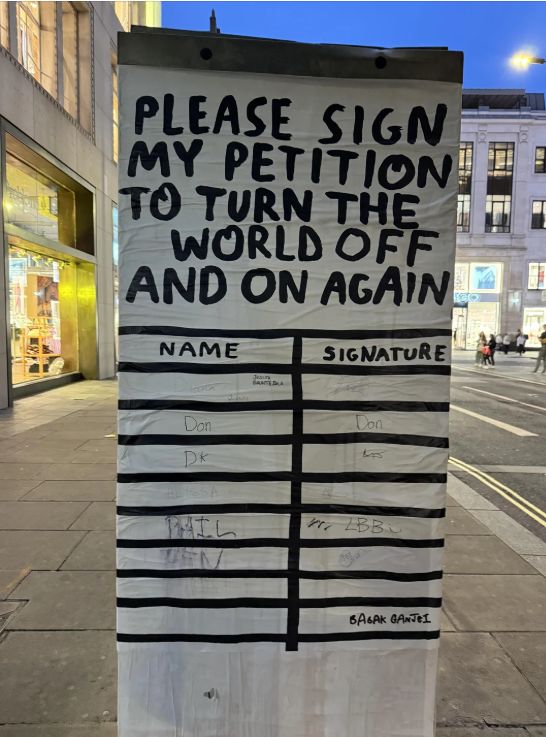 PLEASE SIGN
MY PETITION
TO TURN THE
WORLD OFF
AND ON AGAIN
NAME SIGNATURE
Don Don
DK
PHIL LBB
BABAK GANJEI